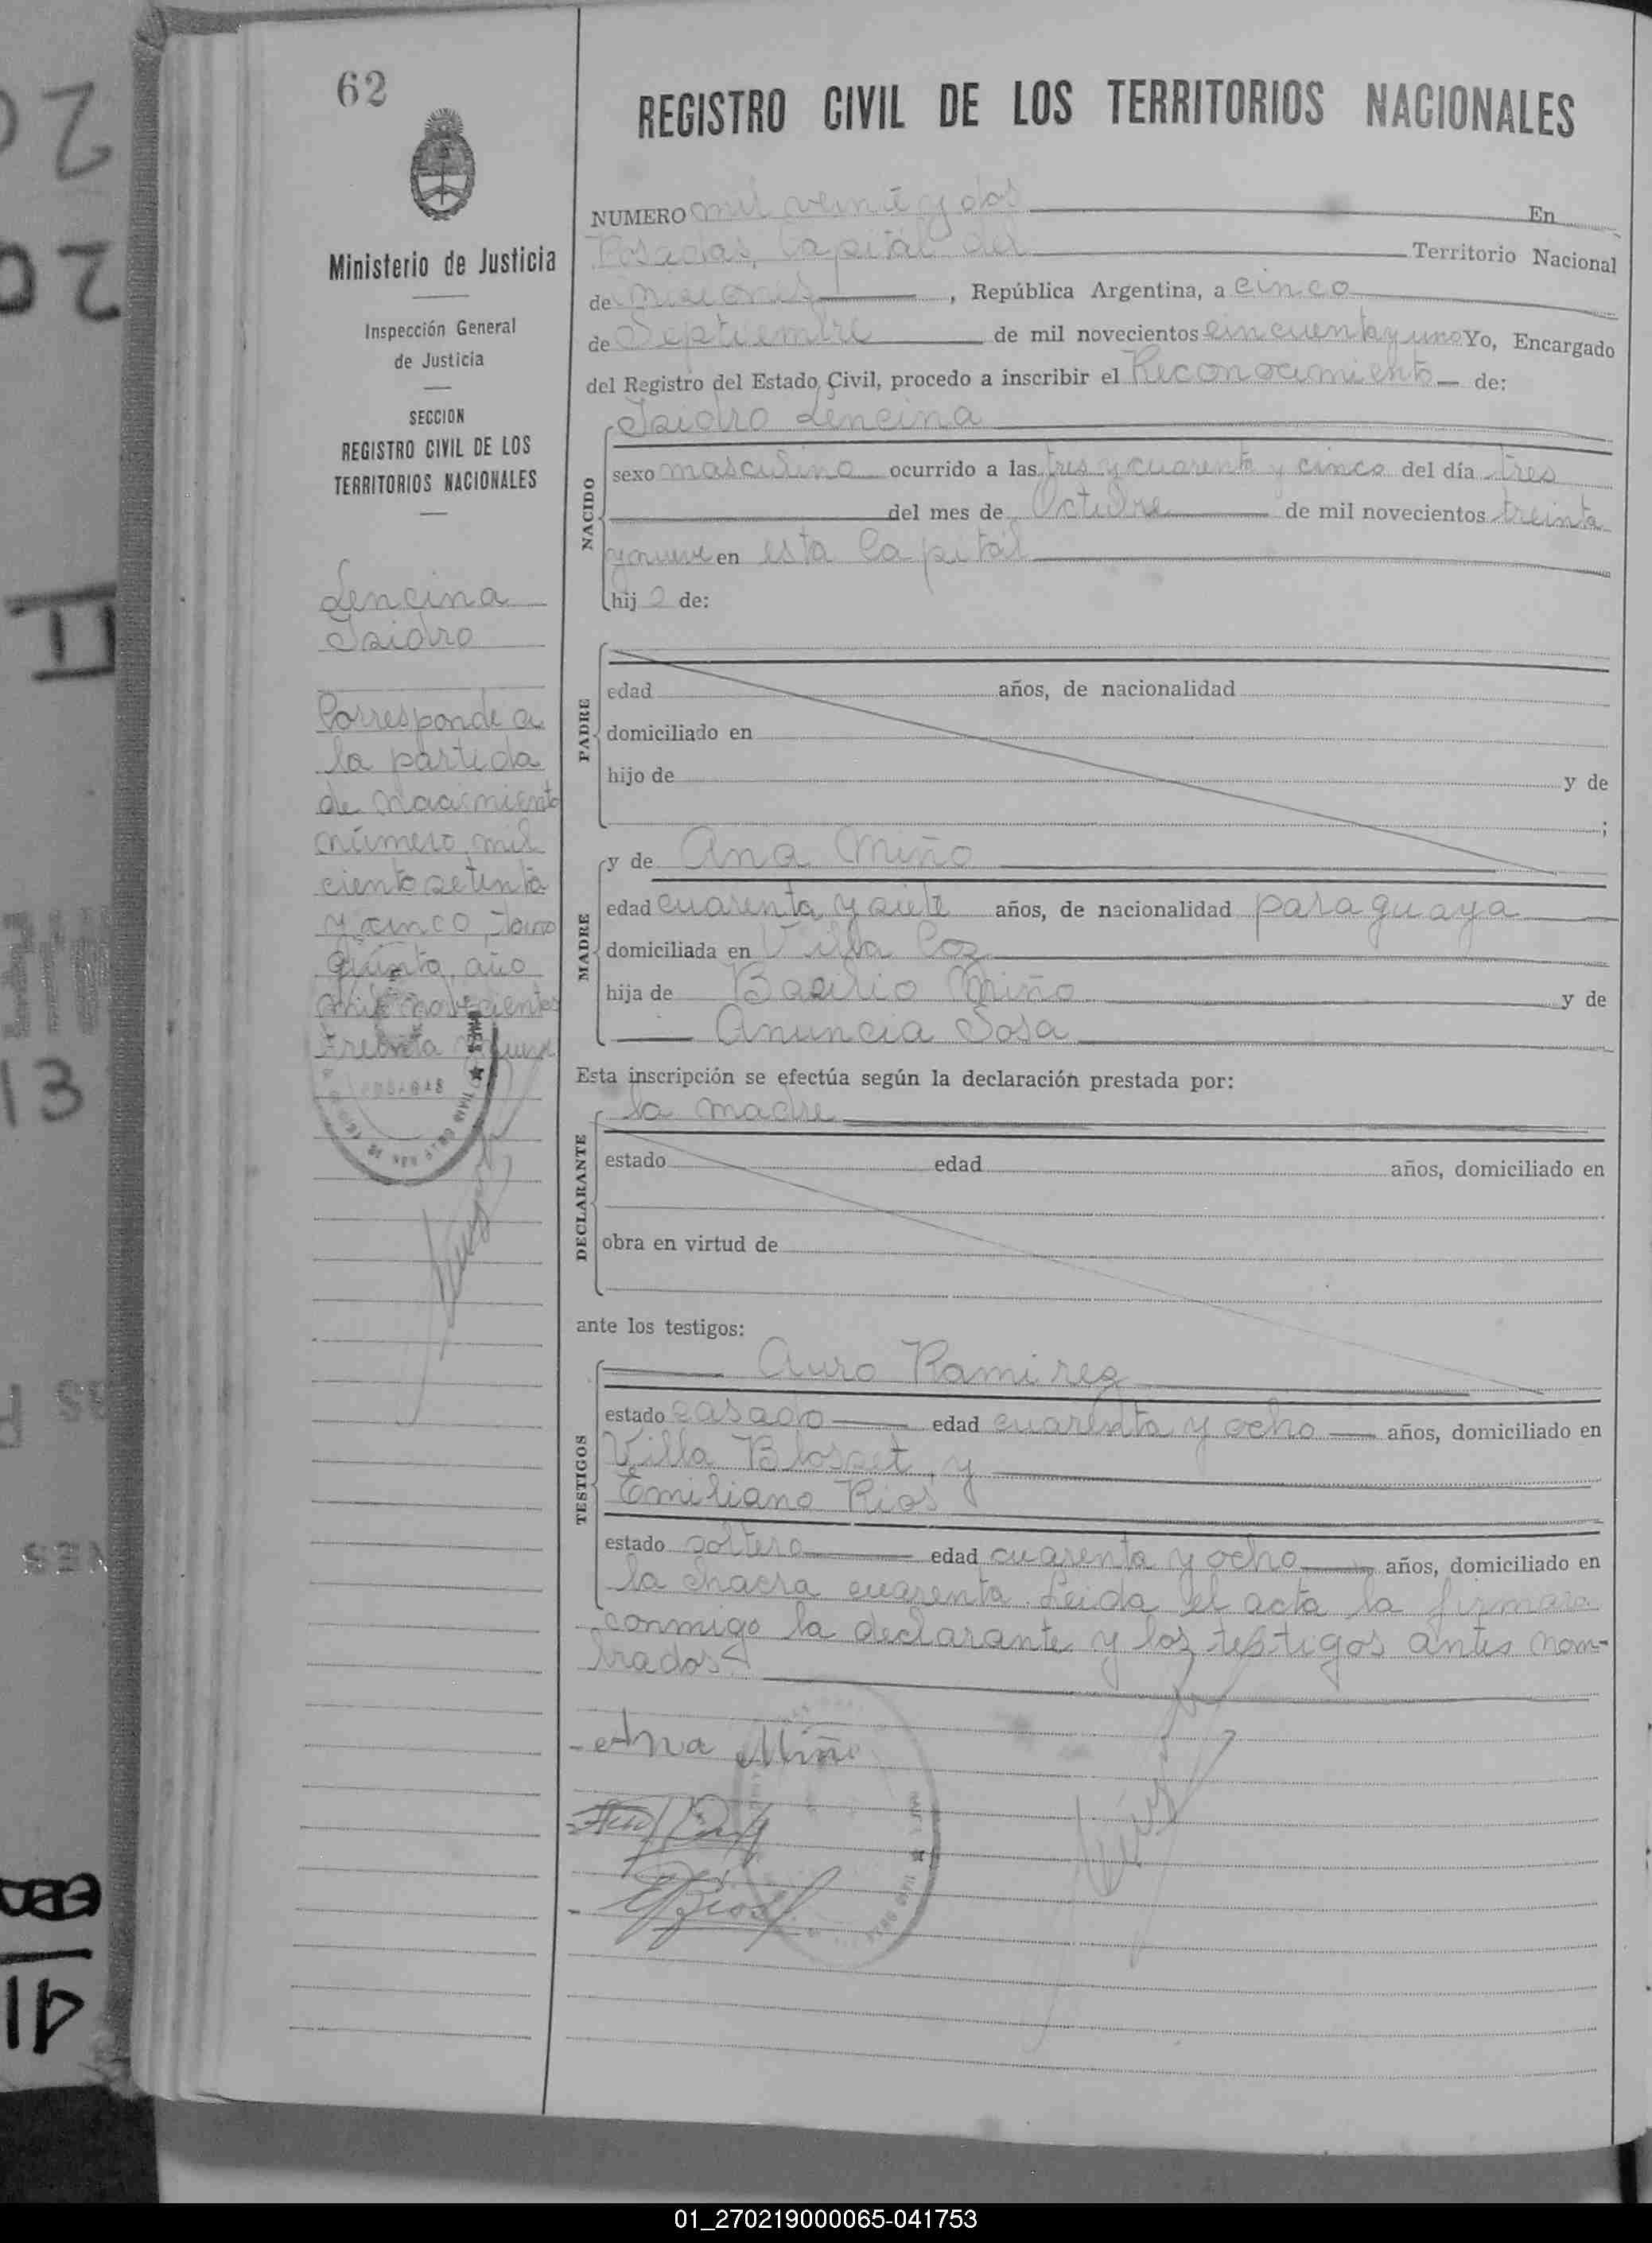 62
Ministerio de Justicia
Inspección General
de Justicia
SECCION
REGISTRO CIVIL DE LOS
TERRITORIOS NACIONALES
Lencina
Isidro
Corresponde a
la partida
de Nacimiento
número mil
ciento setenta
y cinco, Tomo
Quinto, año
mil novecientos
treinta y nueve
REGISTRO CIVIL DE LOS TERRITORIOS NACIONALES
NUMERO mil veinte y dos En
Posadas, Capital del Territorio Nacional
de Misiones, República Argentina, a cinco
de Septiembre de mil novecientos cincuenta y uno Yo, Encargado
del Registro del Estado Civil, procedo a inscribir el Reconocimiento de:
Isidro Lencina
NACIDO
sexo masculino ocurrido a las tres y cuarenta y cinco del día tres
del mes de Octubre de mil novecientos treinta
y nueve en esta Capital
hijo de:
PADRE
edad años, de nacionalidad
domiciliado en
hijo de y de
;
MADRE
y de Ana Miño
edad cuarenta y siete años, de nacionalidad paraguaya
domiciliada en Villa Coz
hija de Basilio Miño y de
Anuncia Sosa
Esta inscripción se efectúa según la declaración prestada por:
la madre
DECLARANTE
estado edad años, domiciliado en
obra en virtud de
ante los testigos:
TESTIGOS
Auro Ramirez
estado casado edad cuarenta y ocho años, domiciliado en
Villa Blosset, y
Emiliano Rios
estado soltero edad cuarenta y ocho años, domiciliado en
la chacra cuarenta. Leida el acta la firmara
conmigo la declarante y los testigos antes nom-
brados
Ana Miño
E Rios
01_270219000065-041753